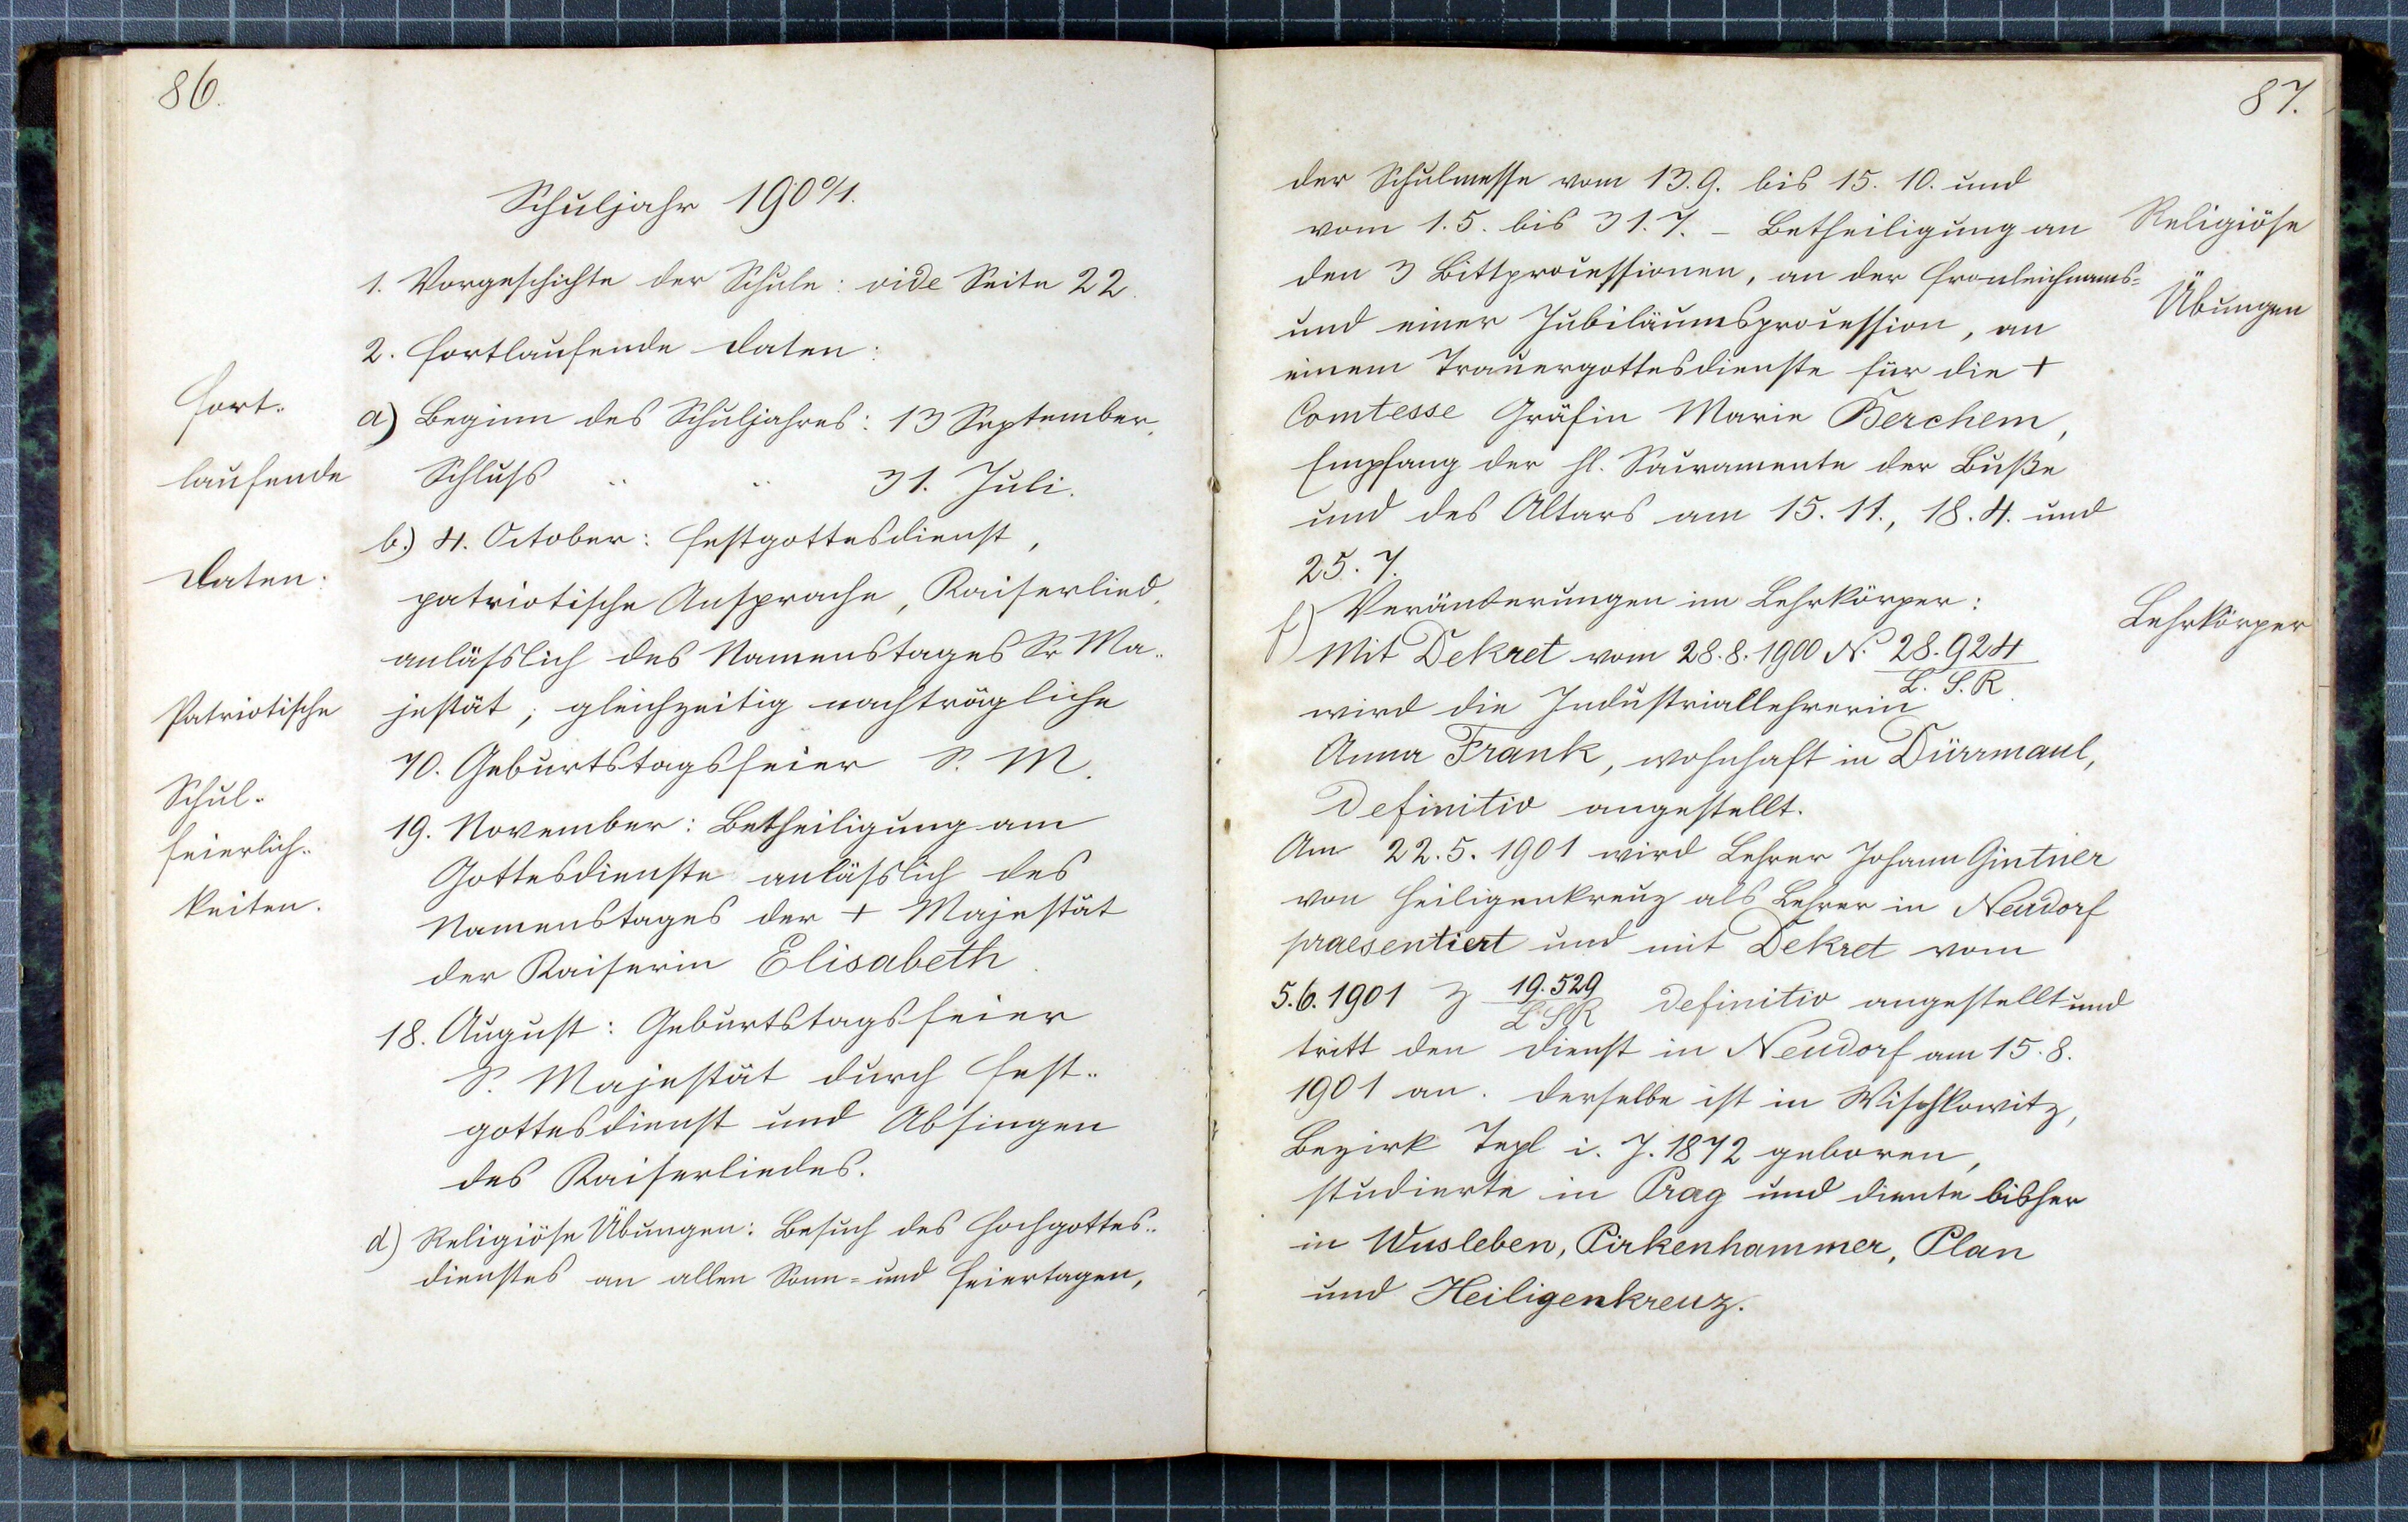 86.
Schuljahr 1900/1.
1. Vorgeschichte der Schule: vide Seite 22.
2. Fortlaufende Daten:
Fort-
laufende
Daten:
a) Beginn des Schuljahres: 13 September,
Schluß " " 31. Juli.
b.) 4. October: Festgottesdienst,
patriotische Ansprache, Kaiserlied,
anläßlich des Namenstages Sr Ma-
jestät; gleichzeitig nachträgliche
70. Geburtstagsfeier S. M.
Patriotische
Schul-
feierlich-
keiten.
19. November: Betheiligung am
Gottesdienste anläßlich des
Namenstages der + Majestät
der Kaiserin Elisabeth.
18. August: Geburtstagsfeier
S. Majestät durch Fest-
gottesdienst und Absingen
des Kaiserliedes.
d) Religiöse Übungen: Besuch des Hochgottes-
dienstes an allen Sonn- und Feiertagen,
87.
der Schulmesse vom 13. 9. bis 15. 10. und
vom 1. 5. bis 31. 7. - Betheiligung an
den 3 Bittprocessionen, an der Fronleichnams-
und einer Jubiläumsprocession, an
einem Trauergottesdienste für die +
Comtesse Gräfin Marie Berchem,
Empfang der hl. Sacramente der Buße
und des Altars am 15. 11., 18. 4. und
25. 7.
Religiöse
Übungen
f) Veränderungen im Lehrkörper:
Lehrkörper
Mit Dekret vom 28. 8. 1900 N. 28.924
L. S. R.
wird die Industriallehrerin
Anna Frank, wohnhaft in Dürrmaul,
definitiv angestellt.
Am 22. 5. 1901 wird Lehrer Johann Gintner
von Heiligenkreuz als Lehrer in Neudorf
praesentiert und mit Dekret vom
5. 6. 1901 Z 19.529 definitiv angestellt und
L S R
tritt den Dienst in Neudorf am 15. 8.
1901 an. Derselbe ist in Wischkowitz,
Bezirk Tepl i. J. 1872 geboren,
studierte in Prag und diente bisher
in Wusleben, Pirkenhammer, Plan
und Heiligenkreuz.